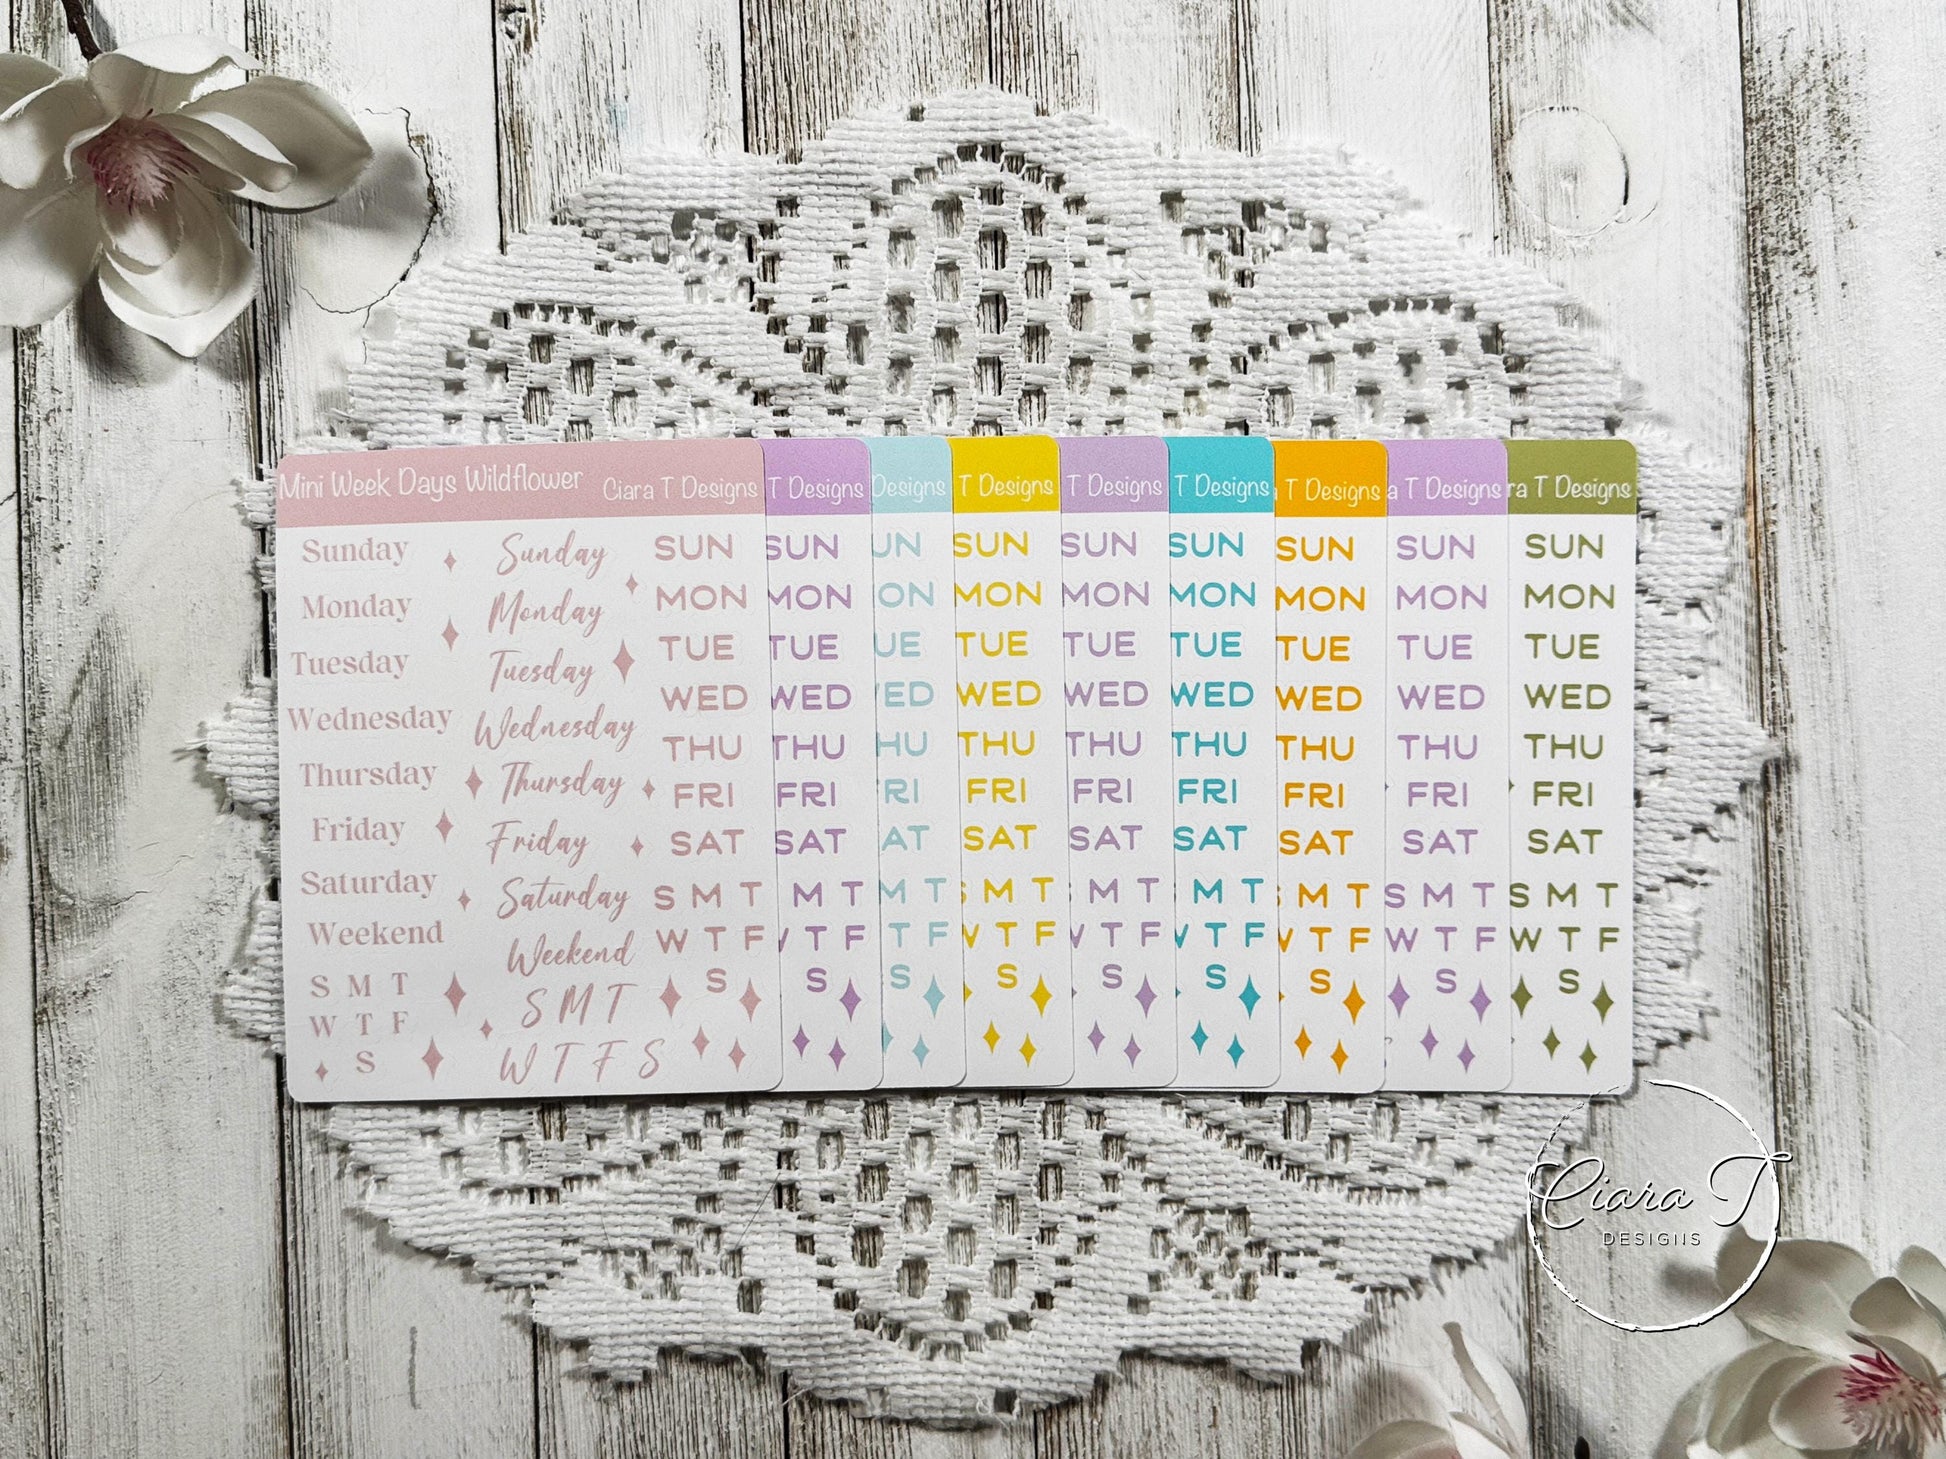 Mini Week Days Wildflower
Ciara T Designs
T Designs
Designs
T Designs
T Designs
T Designs
T Designs
T Designs
T Designs
Sunday
Monday
Tuesday
Wednesday
Thursday
Friday
Saturday
Weekend
S M T
W T F
S
Sunday
Monday
Tuesday
Wednesday
Thursday
Friday
Saturday
Weekend
S M T
W T F S
SUN
MON
TUE
WED
THU
FRI
SAT
S M T
W T F
S
SUN
MON
TUE
WED
THU
FRI
SAT
M T
T F
S
M T
T F
S
SUN
MON
TUE
WED
THU
FRI
SAT
M T
T F
S
SUN
MON
TUE
WED
THU
FRI
SAT
M T
T F
S
SUN
MON
TUE
WED
THU
FRI
SAT
M T
T F
S
SUN
MON
TUE
WED
THU
FRI
SAT
M T
T F
S
SUN
MON
TUE
WED
THU
FRI
SAT
S M T
W T F
S
SUN
MON
TUE
WED
THU
FRI
SAT
S M T
W T F
S
Ciara T
DESIGNS